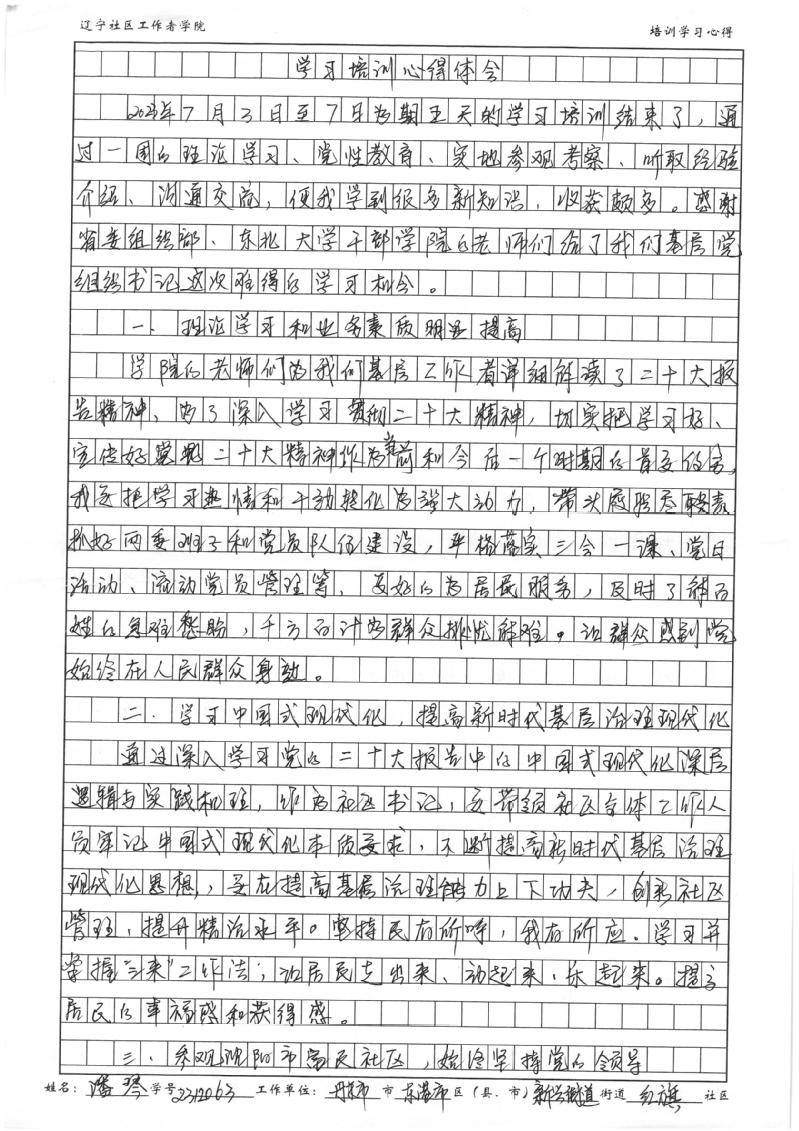 辽宁社区工作者学院
培训学习心得
学习培训心得体会
2023年7月3日至7日为期五天的学习培训结束了，通
过一周的理论学习、党性教育、实地参观考察、听取经验
介绍、沟通交流，使我学到很多新知识，收获颇多。感谢
省委组织部、东北大学干部学院的老师们给了我们基层党
组织书记这次难得的学习机会。
一、理论学习和业务素质明显提高
学院的老师们为我们基层工作者详细解读了二十大报
告精神，为了深入学习贯彻二十大精神，切实把学习好、
宣传好党的二十大精神作为当前和今后一个时期的首要任务，
我要把学习热情和干动转化为强大动力，带头履职尽责
抓好两委班子和党员队伍建设，严格落实三会一课、党日
活动、流动党员管理等，更好的为居民服务，及时了解百
姓的急难愁盼，千方百计为群众排忧解难。让群众感到党
始终在人民群众身边。
二、学习中国式现代化，提高新时代基层治理现代化
通过深入学习党的二十大报告中的中国式现代化深层
逻辑与实践机理，作为社区书记，要带领社区全体工作人
员牢记中国式现代化本质要求，不断提高新时代基层治理
现代化思想，要在提高基层治理能力上下功夫，创新社区
管理，提升精治水平。坚持民有所呼，我有所应。学习并
掌握“三来”工作法；让居民走出来、动起来、乐起来。提高
居民的幸福感和获得感。
三、参观沈阳市富民社区，始终坚持党的领导
姓名：潘琴 学号2312063 工作单位：丹东市 市 东港市 区（县、市）新兴街道 街道 红旗 社区